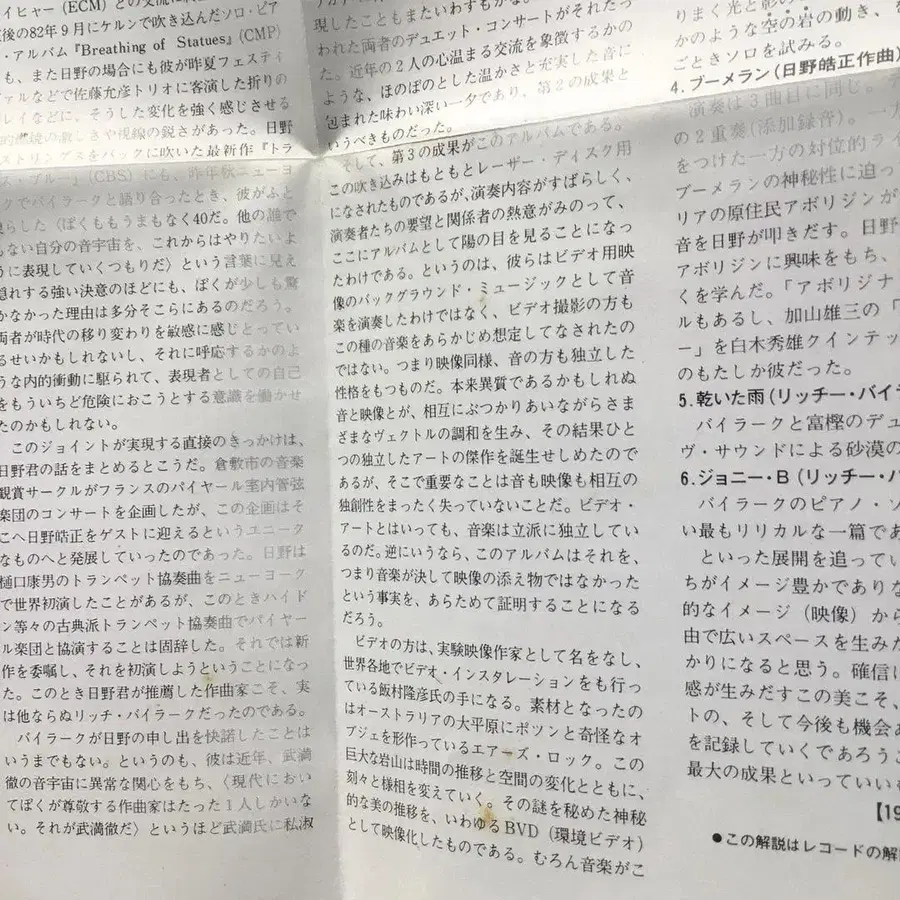 イヒャー（ECM）との交流に
後の82年9月にケルンで吹き込んだソロ・ピア
・アルバム『Breathing of Statues』(CMP)
も、また日野の場合にも彼が昨夏フェスティ
ァルなどで佐藤允彦トリオに客演した折りの
レイなどに、そうした変化を強く感じさせる
的燃焼の激しさや視線の鋭さがあった。日野
ストリングスをバックに吹いた最新作『トラ
ス・ブルー』(CBS）にも、昨年秋ニューヨ
クでバイラークと語り合ったとき、彼がふと
らした〈ぼくももうまもなく40だ。他の誰で
ない自分の音宇宙を、これからはやりたいよ
うに表現していくつもりだ〉という言葉に見え
隠れする強い決意のほどにも、ぼくが少しも驚
かなかった理由は多分そこらにあるのだろう。
両者が時代の移り変わりを敏感に感じとってい
るせいかもしれないし、それに呼応するかのよ
うな内的衝動に駆られて、表現者としての自己
をもういちど危険におこうとする意識を働かせ
たのかもしれない。
このジョイントが実現する直接のきっかけは、
日野君の話をまとめるとこうだ。倉敷市の音楽
観賞サークルがフランスのパイヤール室内管弦
楽団のコンサートを企画したが、この企画はそ
こへ日野皓正をゲストに迎えるというユニーク
なものへと発展していったのであった。日野は
樋口康男のトランペット協奏曲をニューヨーク
で世界初演したことがあるが、このときハイド
ン等々の古典派トランペット協奏曲でパイヤー
ル楽団と協演することは固辞した。それでは新
作を委嘱し、それを初演しようということになっ
た。このとき日野君が推薦した作曲家こそ、実
は他ならぬリッチ・バイラークだったのである。
バイラークが日野の申し出を快諾したことは
いうまでもない。というのも、彼は近年、武満
徹の音宇宙に異常な関心をもち、〈現代におい
てぼくが尊敬する作曲家はたった1人しかいな
い。それが武満徹だ〉というほど武満氏に私淑
現したこともまたいわずもがな
われた両者のデュエット・コンサートがそれだっ
た。近年の2人の心温まる交流を象徴するかの
ような、ほのぼのとした温かさと充実した音に
包まれた味わい深い一夕であり、第2の成果と
いうべきものだった。
そして、第3の成果がこのアルバムである。
この吹き込みはもともとレーザー・ディスク用
になされたものであるが、演奏内容がすばらしく、
演奏者たちの要望と関係者の熱意がみのって、
ここにアルバムとして陽の目を見ることになっ
たわけである。というのは、彼らはビデオ用映
像のバックグラウンド・ミュージックとして音
楽を演奏したわけではなく、ビデオ撮影の方も
この種の音楽をあらかじめ想定してなされたの
ではない。つまり映像同様、音の方も独立した
性格をもつものだ。本来異質であるかもしれぬ
音と映像とが、相互にぶつかりあいながらさま
ざまなヴェクトルの調和を生み、その結果ひと
つの独立したアートの傑作を誕生せしめたので
あるが、そこで重要なことは音も映像も相互の
独創性をまったく失っていないことだ。ビデオ・
アートとはいっても、音楽は立派に独立してい
るのだ。逆にいうなら、このアルバムはそれを、
つまり音楽が決して映像の添え物ではなかった
という事実を、あらためて証明することになる
だろう。
ビデオの方は、実験映像作家として名をなし、
世界各地でビデオ・インスタレーションをも行っ
ている飯村隆彦氏の手になる。素材となったの
はオーストラリアの大平原にポツンと奇怪なオ
ブジェを形作っているエアーズ・ロック。この
巨大な岩山は時間の推移と空間の変化とともに、
刻々と様相を変えていく。その謎を秘めた神秘
的な美の推移を、いわゆるBVD（環境ビデオ）
として映像化したものである。むろん音楽がこ
りまく光と影の
かのような空の岩の動き、を
ごときソロを試みる。
4.ブーメラン（日野皓正作曲）
演奏は3曲目に同じ。一方
の2重奏（添加録音）。
をつけた一方の対位的ライ
ブーメランの神秘性に迫っ
リアの原住民アボリジンが
音を日野が叩きだす。日野
アボリジンに興味をもち、
くを学んだ。「アボリジナ
ルもあるし、加山雄三の「
ー」を白木秀雄クインテッ
のもたしか彼だった。
5.乾いた雨（リッチー・バイラ
バイラークと富樫のデュ
ヴ・サウンドによる砂漠の
6.ジョニー・B（リッチー・バ
バイラークのピアノ・ソ
い最もリリカルな一篇であ
といった展開を追ってい
ちがイメージ豊かでありな
的なイメージ（映像）から
由で広いスペースを生みだ
かりになると思う。確信に
感が生みだすこの美こそ、
トの、そして今後も機会あ
を記録していくであろうこ
最大の成果といっていいも
【19
●この解説はレコードの解